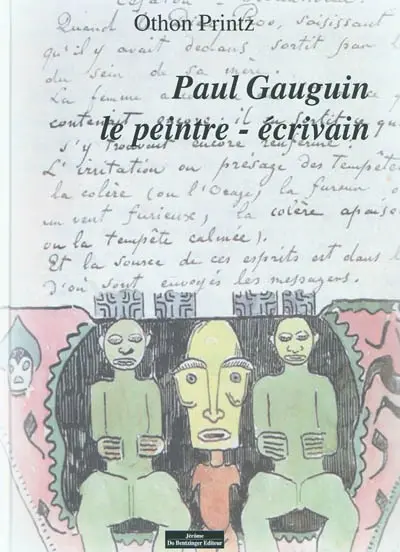 Othon Printz
Quand
saisissant
qu'il y avait dedans sortit par
du sein de sa mère.
Paul Gauguin
La femme a
contenait encore: il en sortit ce qui
le peintre - écrivain
s'y trouvait encore renfermé:
L'irritation ou présage des Tempêtes
la colère (ou l'Orage), la fureur o
un vent furieux, la colère apaisé
ou la tempête calmée).
Et la source de ces esprits est dans l
d'où sont envoyés les messagers.
Jérôme
Do Bentzinger Editeur